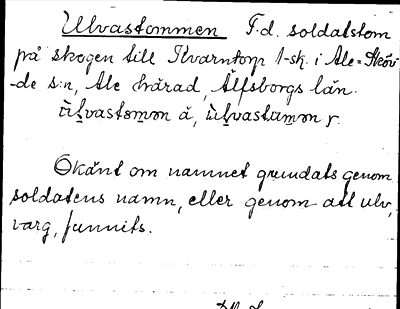 Ulvastommen F.d. soldatstom
på skogen till Kvarntorp 1-sk. i Ale-Sköv-
de s:n, Ale härad, Älfsborgs län.
ùl̥vastsmon å, ùl̥vastumon y.
Okänt om namnet grundats genom
soldatens namn, eller genom att ulv,
varg, funnits.